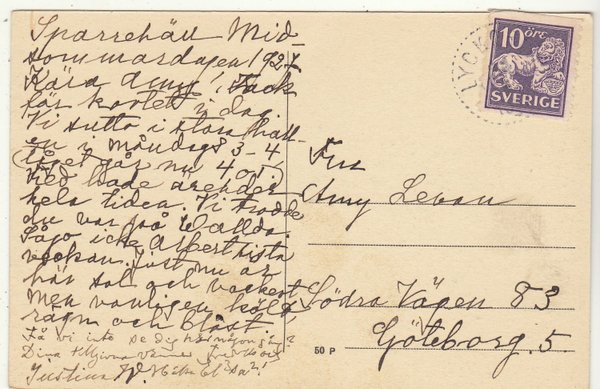 Sparrehäll Mid-
sommardagen 1927
Kära Amy! Tack
för kortet i dag.
Vi sutto i stora hall-
en i måndags 3-4
(tåget går nu 4.05)
hela tiden. Vi trodde
du var på
Sågo icke Albert sista
veckan. Just nu är
här sol och vackert
men vanligen kallt
regn och blåst.
Få vi inte se dig här någon gång?
Dina tillgivna vänner
Justina
LYCK
10 ÖRE
SVERIGE
Fru
Amy Levan
Södra Vägen 83
Göteborg. 5.
50 P